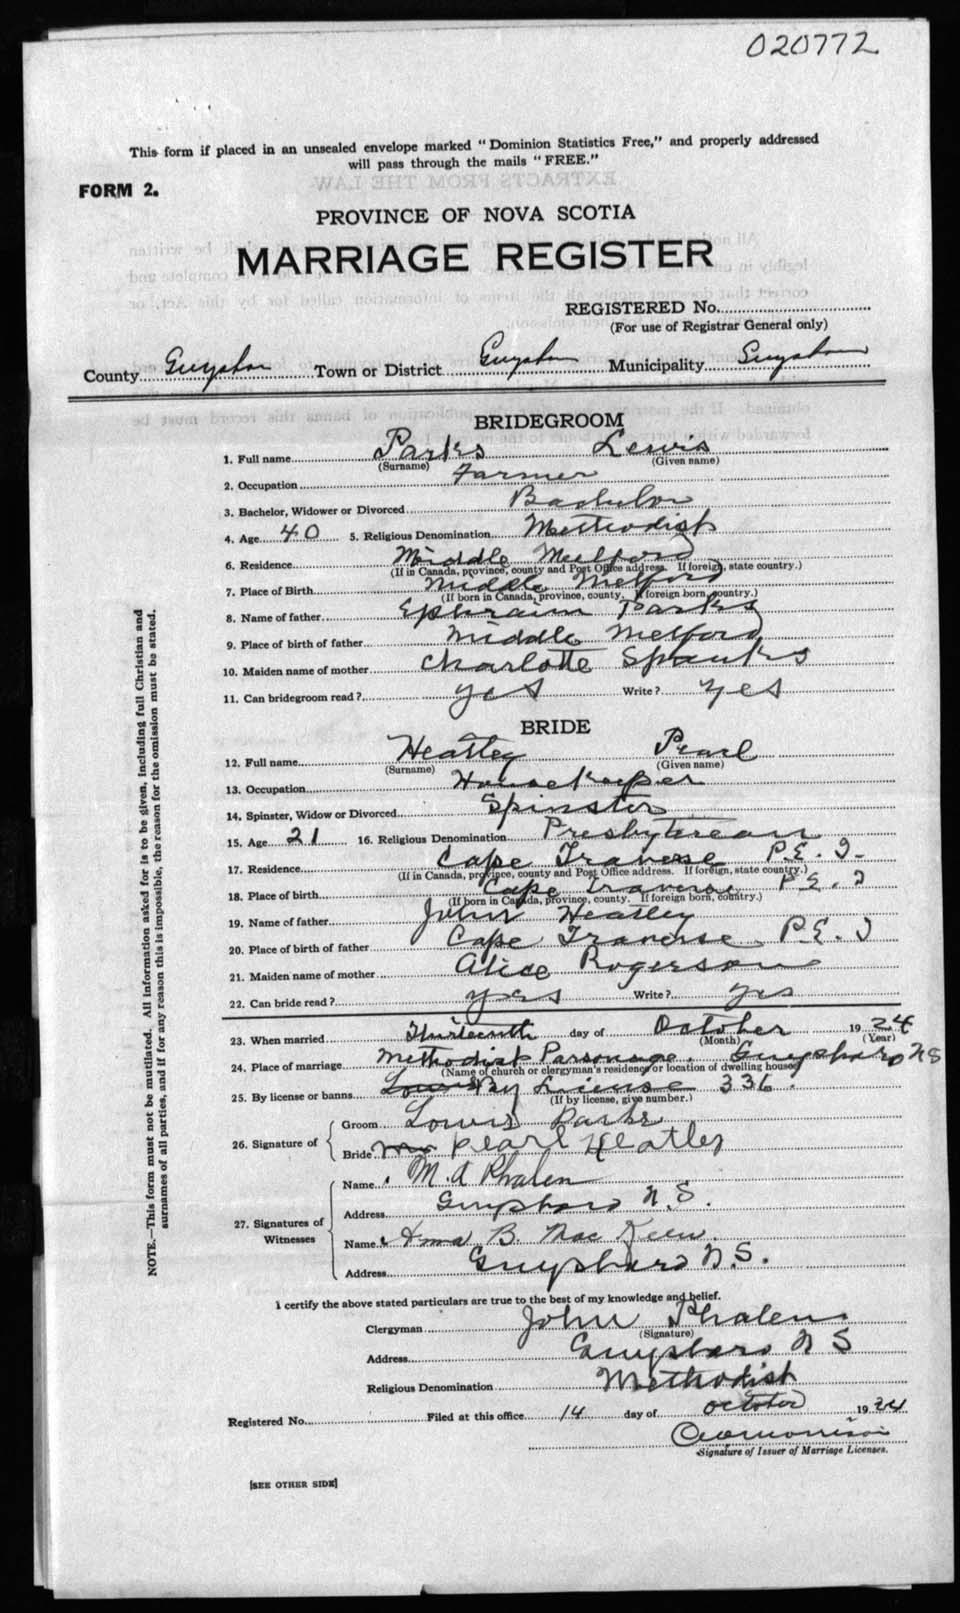 020772
This form if placed in an unsealed envelope marked "Dominion Statistics Free," and properly addressed
will pass through the mails "FREE."
FORM 2.
PROVINCE OF NOVA SCOTIA
MARRIAGE REGISTER
REGISTERED No.
(For use of Registrar General only)
County Guysboro Town or District Guysboro Municipality Guysboro
BRIDEGROOM
1. Full name Parks Lewis
(Surname) (Given name)
2. Occupation Farmer
3. Bachelor, Widower or Divorced Bachelor
4. Age 40 5. Religious Denomination Methodist
6. Residence Middle Melford
(If in Canada, province, county and Post Office address. If foreign, state country.)
7. Place of Birth Middle Melford
(If born in Canada, province, county. If foreign born, country.)
8. Name of father Ephraim Parks
9. Place of birth of father Middle Melford
10. Maiden name of mother Charlotte Spanks
11. Can bridegroom read? yes Write? yes
BRIDE
12. Full name Heatley Pearl
(Surname) (Given name)
13. Occupation Housekeeper
14. Spinster, Widow or Divorced Spinster
15. Age 21 16. Religious Denomination Presbyterean
17. Residence Cape Traverse P.E.I.
(If in Canada, province, county and Post Office address. If foreign, state country.)
18. Place of birth Cape Traverse P.E.I
(If born in Canada, province, county. If foreign born, country.)
19. Name of father John Heatley
20. Place of birth of father Cape Traverse P.E.I
21. Maiden name of mother Alice Rogerson
22. Can bride read? yes Write? yes
23. When married Thirteenth day of October 1924
(Month) (Year)
24. Place of marriage Methodist Parsonage. Guysboro NS
(Name of church or clergyman's residence or location of dwelling house)
25. By license or banns Lewis By License 336.
(If by license, give number.)
26. Signature of
Groom Lowis Parks
Bride Mrs Pearl Heatley
27. Signatures of Witnesses
Name M. A Phalen
Address Guysboro N.S.
Name B. Mac Keen.
Address Guysboro N.S.
I certify the above stated particulars are true to the best of my knowledge and belief.
Clergyman John Phalen
(Signature)
Address Guysboro N S
Religious Denomination Methodist
Registered No. Filed at this office 14 day of October 1924
Morrison
Signature of Issuer of Marriage Licenses.
[SEE OTHER SIDE]
NOTE.—This form must not be mutilated. All information asked for is to be given, including full Christian and
surnames of all parties, and if for any reason this is impossible, the reason for the omission must be stated.